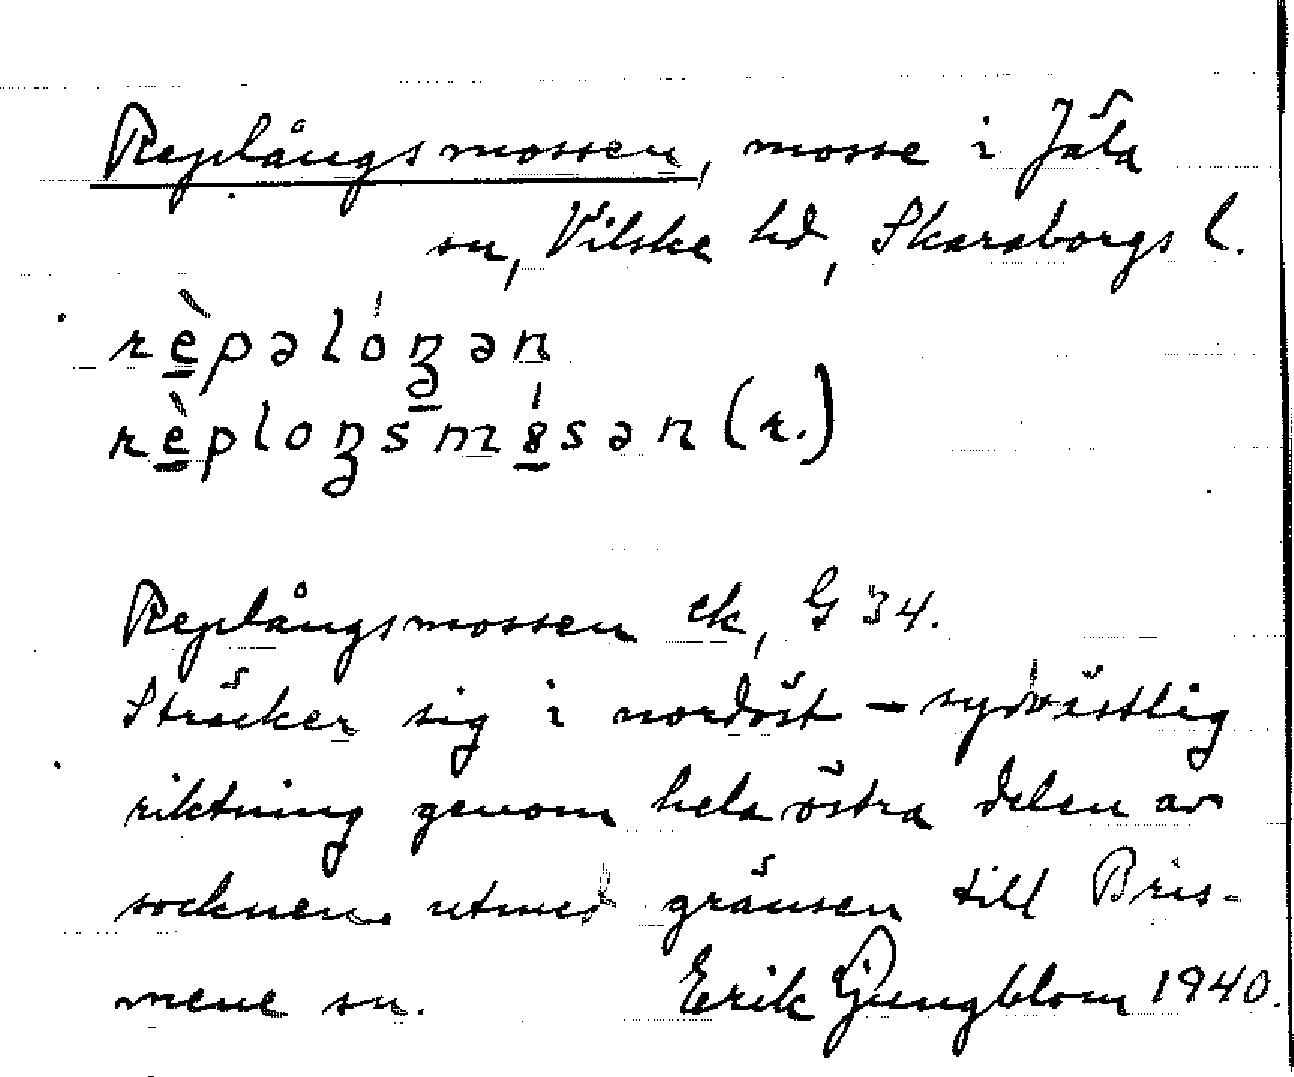 Replångsmossen, mosse i Jäla
sn, Vilske hd, Skaraborgs l.
rèpəlóŋən
rèploŋsmósən (r.)
Replångsmossen ek, G 34.
Sträcker sig i nordöst – sydvästlig
riktning genom hela östra delen av
socknen utmed gränsen till Bris-
mene sn. Erik Ljungblom 1940.